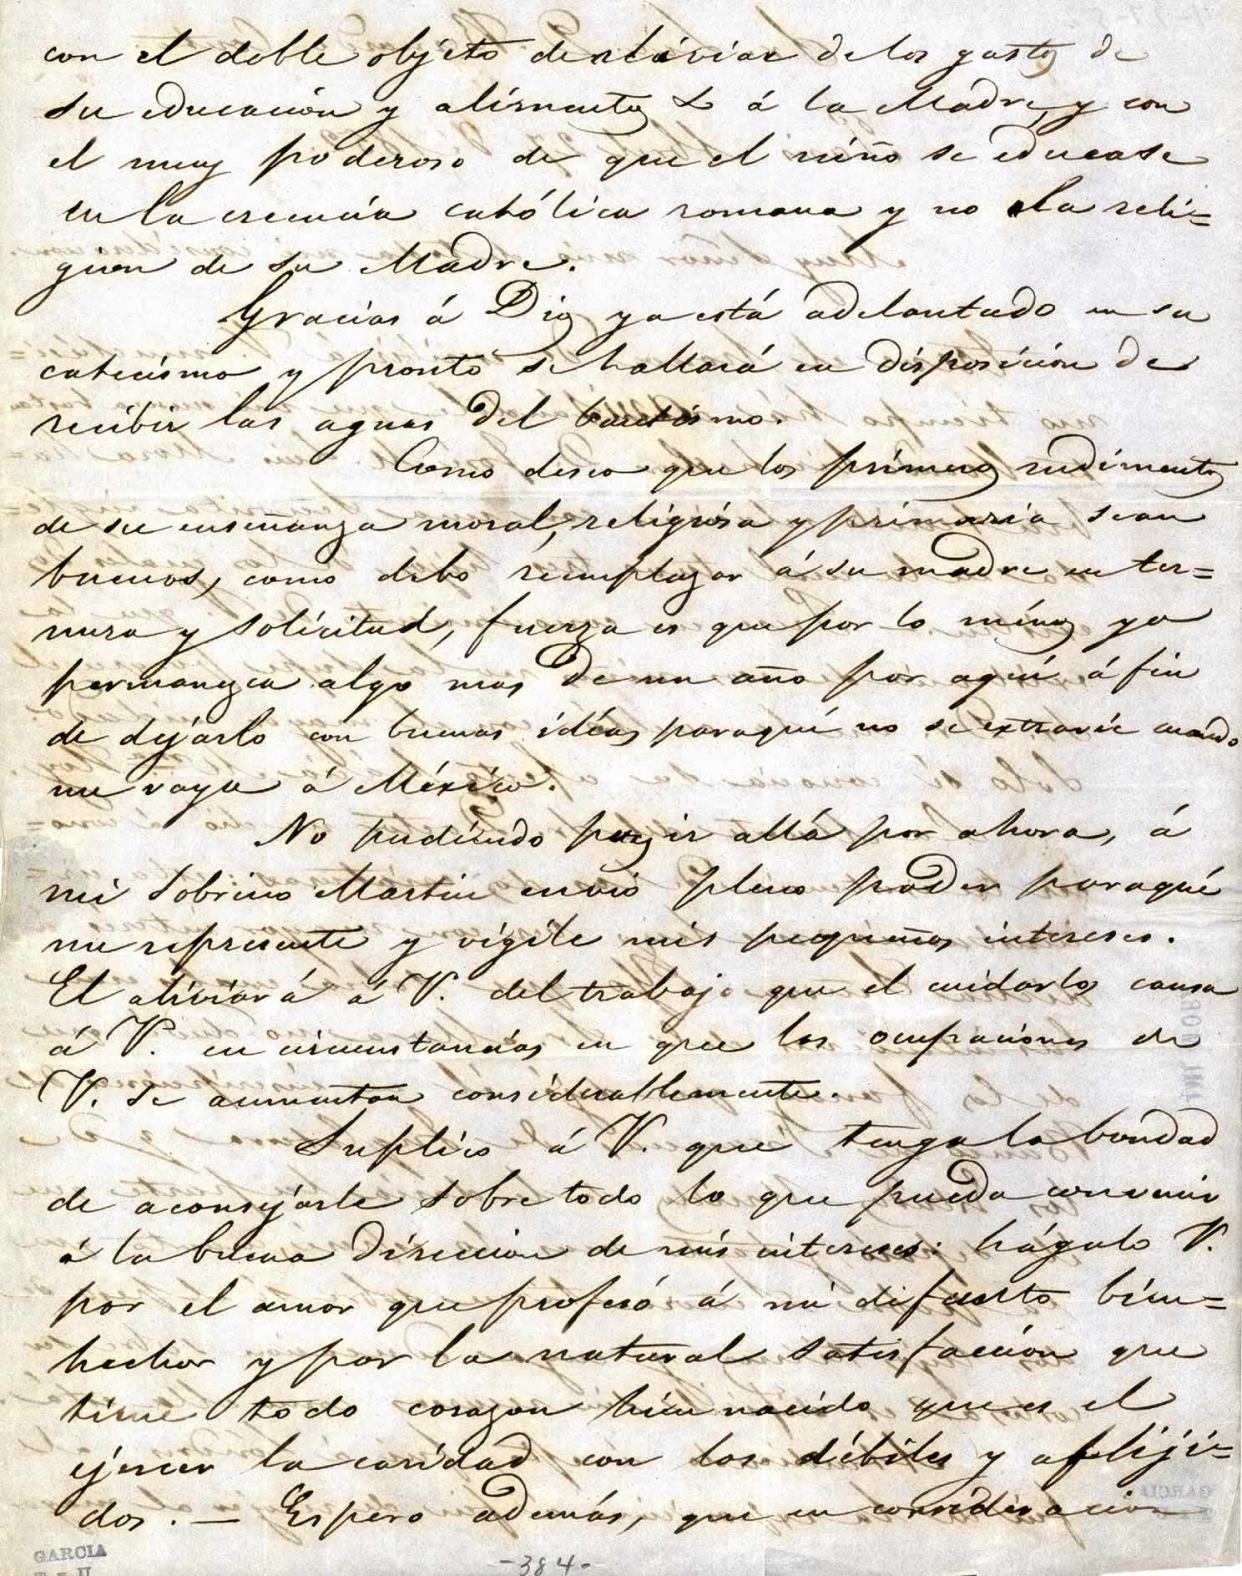 con el doble objeto de aliviar de los gastos de
su educación y alimentos & á la Madre, y con
el muy poderoso de que el niño se educase
en la creencia católica romana y no la reli=
gion de su Madre.
Gracias á Dios ya está adelantado en su
catecismo y pronto se hallará en disposicion de
recibir las aguas del bautismo.
Como deseo que los primeros rudimentos
de su enseñanza moral, religiosa y primaria sean
buenos, como debo reemplazar á su madre en ter=
nura y solicitud, fuerza es que por lo menos yo
permanezca algo mas de un año por aquí á fin
de dejarlo con buenas idéas paraqué no se extravíe cuando
me vaya á México.
No pudiendo pues ir allá por ahora, á
mi Sobrino Martin envio pleno poder paraqué
me represente y vigile mis pequeños intereses.
El aliviará á V. del trabajo que el cuidarlos causa
á V. en circunstancias en que las ocupaciones de
V. se aumentan considerablemente.
Suplico á V. que tenga la bondad
de aconsejarle sobre todo lo que pueda convenir
á la buena direccion de mis intereses: hágalo V.
por el amor que profesó á mi difunto bien=
hechor y por la natural satisfaccion que
tiene todo corazon bien nacido que es el
ejercer la caridad con los débiles y aflijí=
dos. — Espero además, que en consideracion
GARCIA
-384-